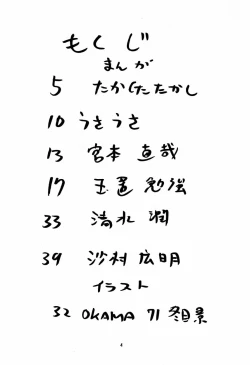 もくじ
まんが
5 たかしたたかし
10 うさうさ
13 宮本 直哉
17 玉置 勉強
33 清水 潤
39 沙村 広明
イラスト
32 OKAMA 71 冬目景
4